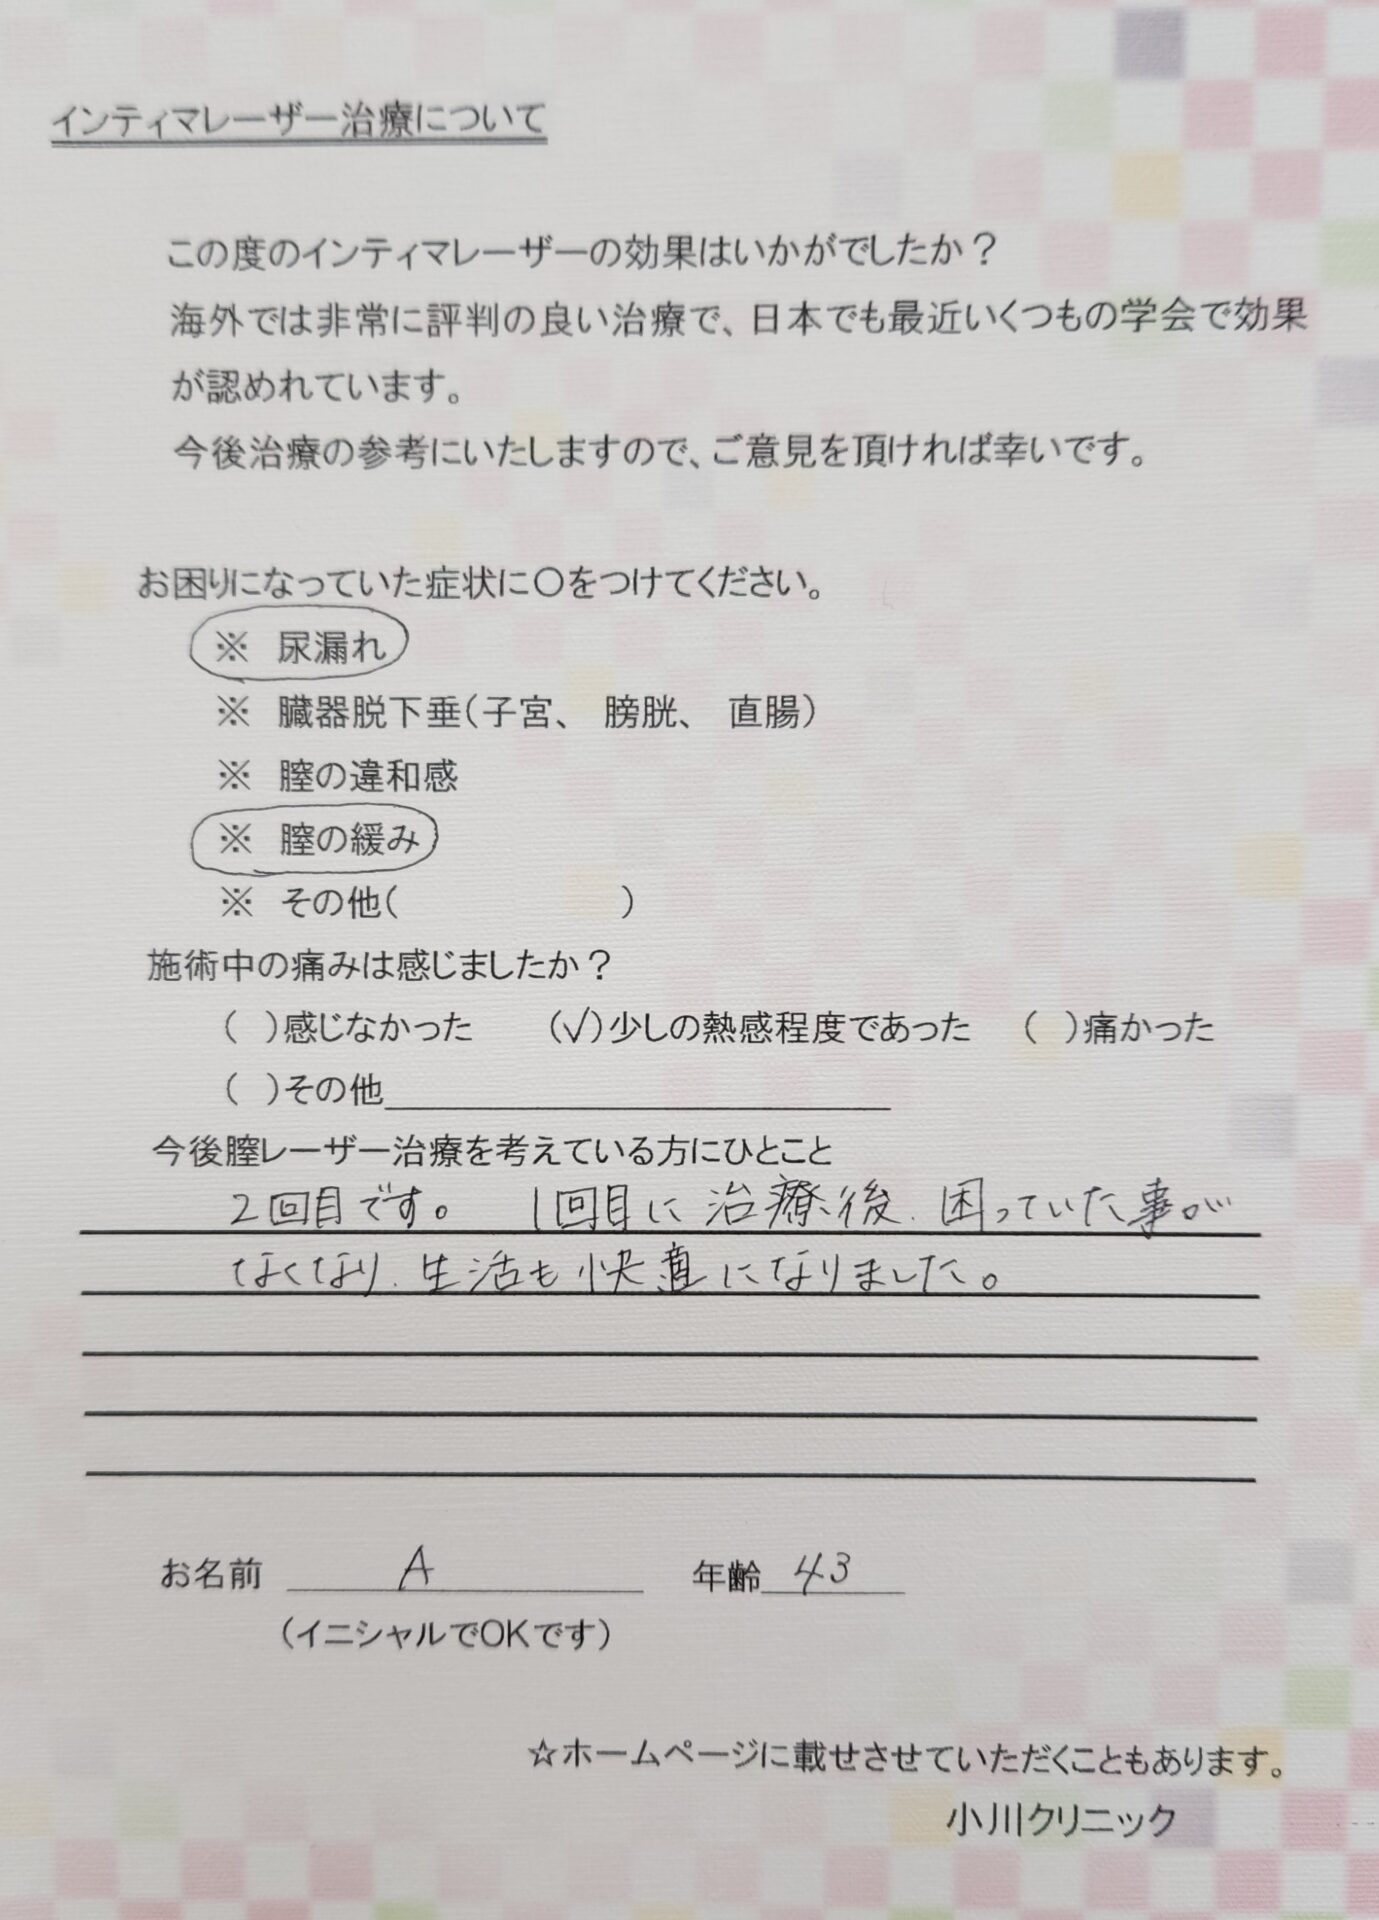 インティマレーザー治療について
この度のインティマレーザーの効果はいかがでしたか？
海外では非常に評判の良い治療で、日本でも最近いくつもの学会で効果
が認めれています。
今後治療の参考にいたしますので、ご意見を頂ければ幸いです。
お困りになっていた症状に〇をつけてください。
※ 尿漏れ
※ 臓器脱下垂（子宮、 膀胱、 直腸）
※ 膣の違和感
※ 膣の緩み
※ その他（ ）
施術中の痛みは感じましたか？
（ ）感じなかった （✓）少しの熱感程度であった （ ）痛かった
（ ）その他
今後膣レーザー治療を考えている方にひとこと
2回目です。 1回目に治療後、困っていた事が
なくなり、生活も快適になりました。
お名前 A 年齢 43
（イニシャルでOKです）
☆ホームページに載せさせていただくこともあります。
小川クリニック